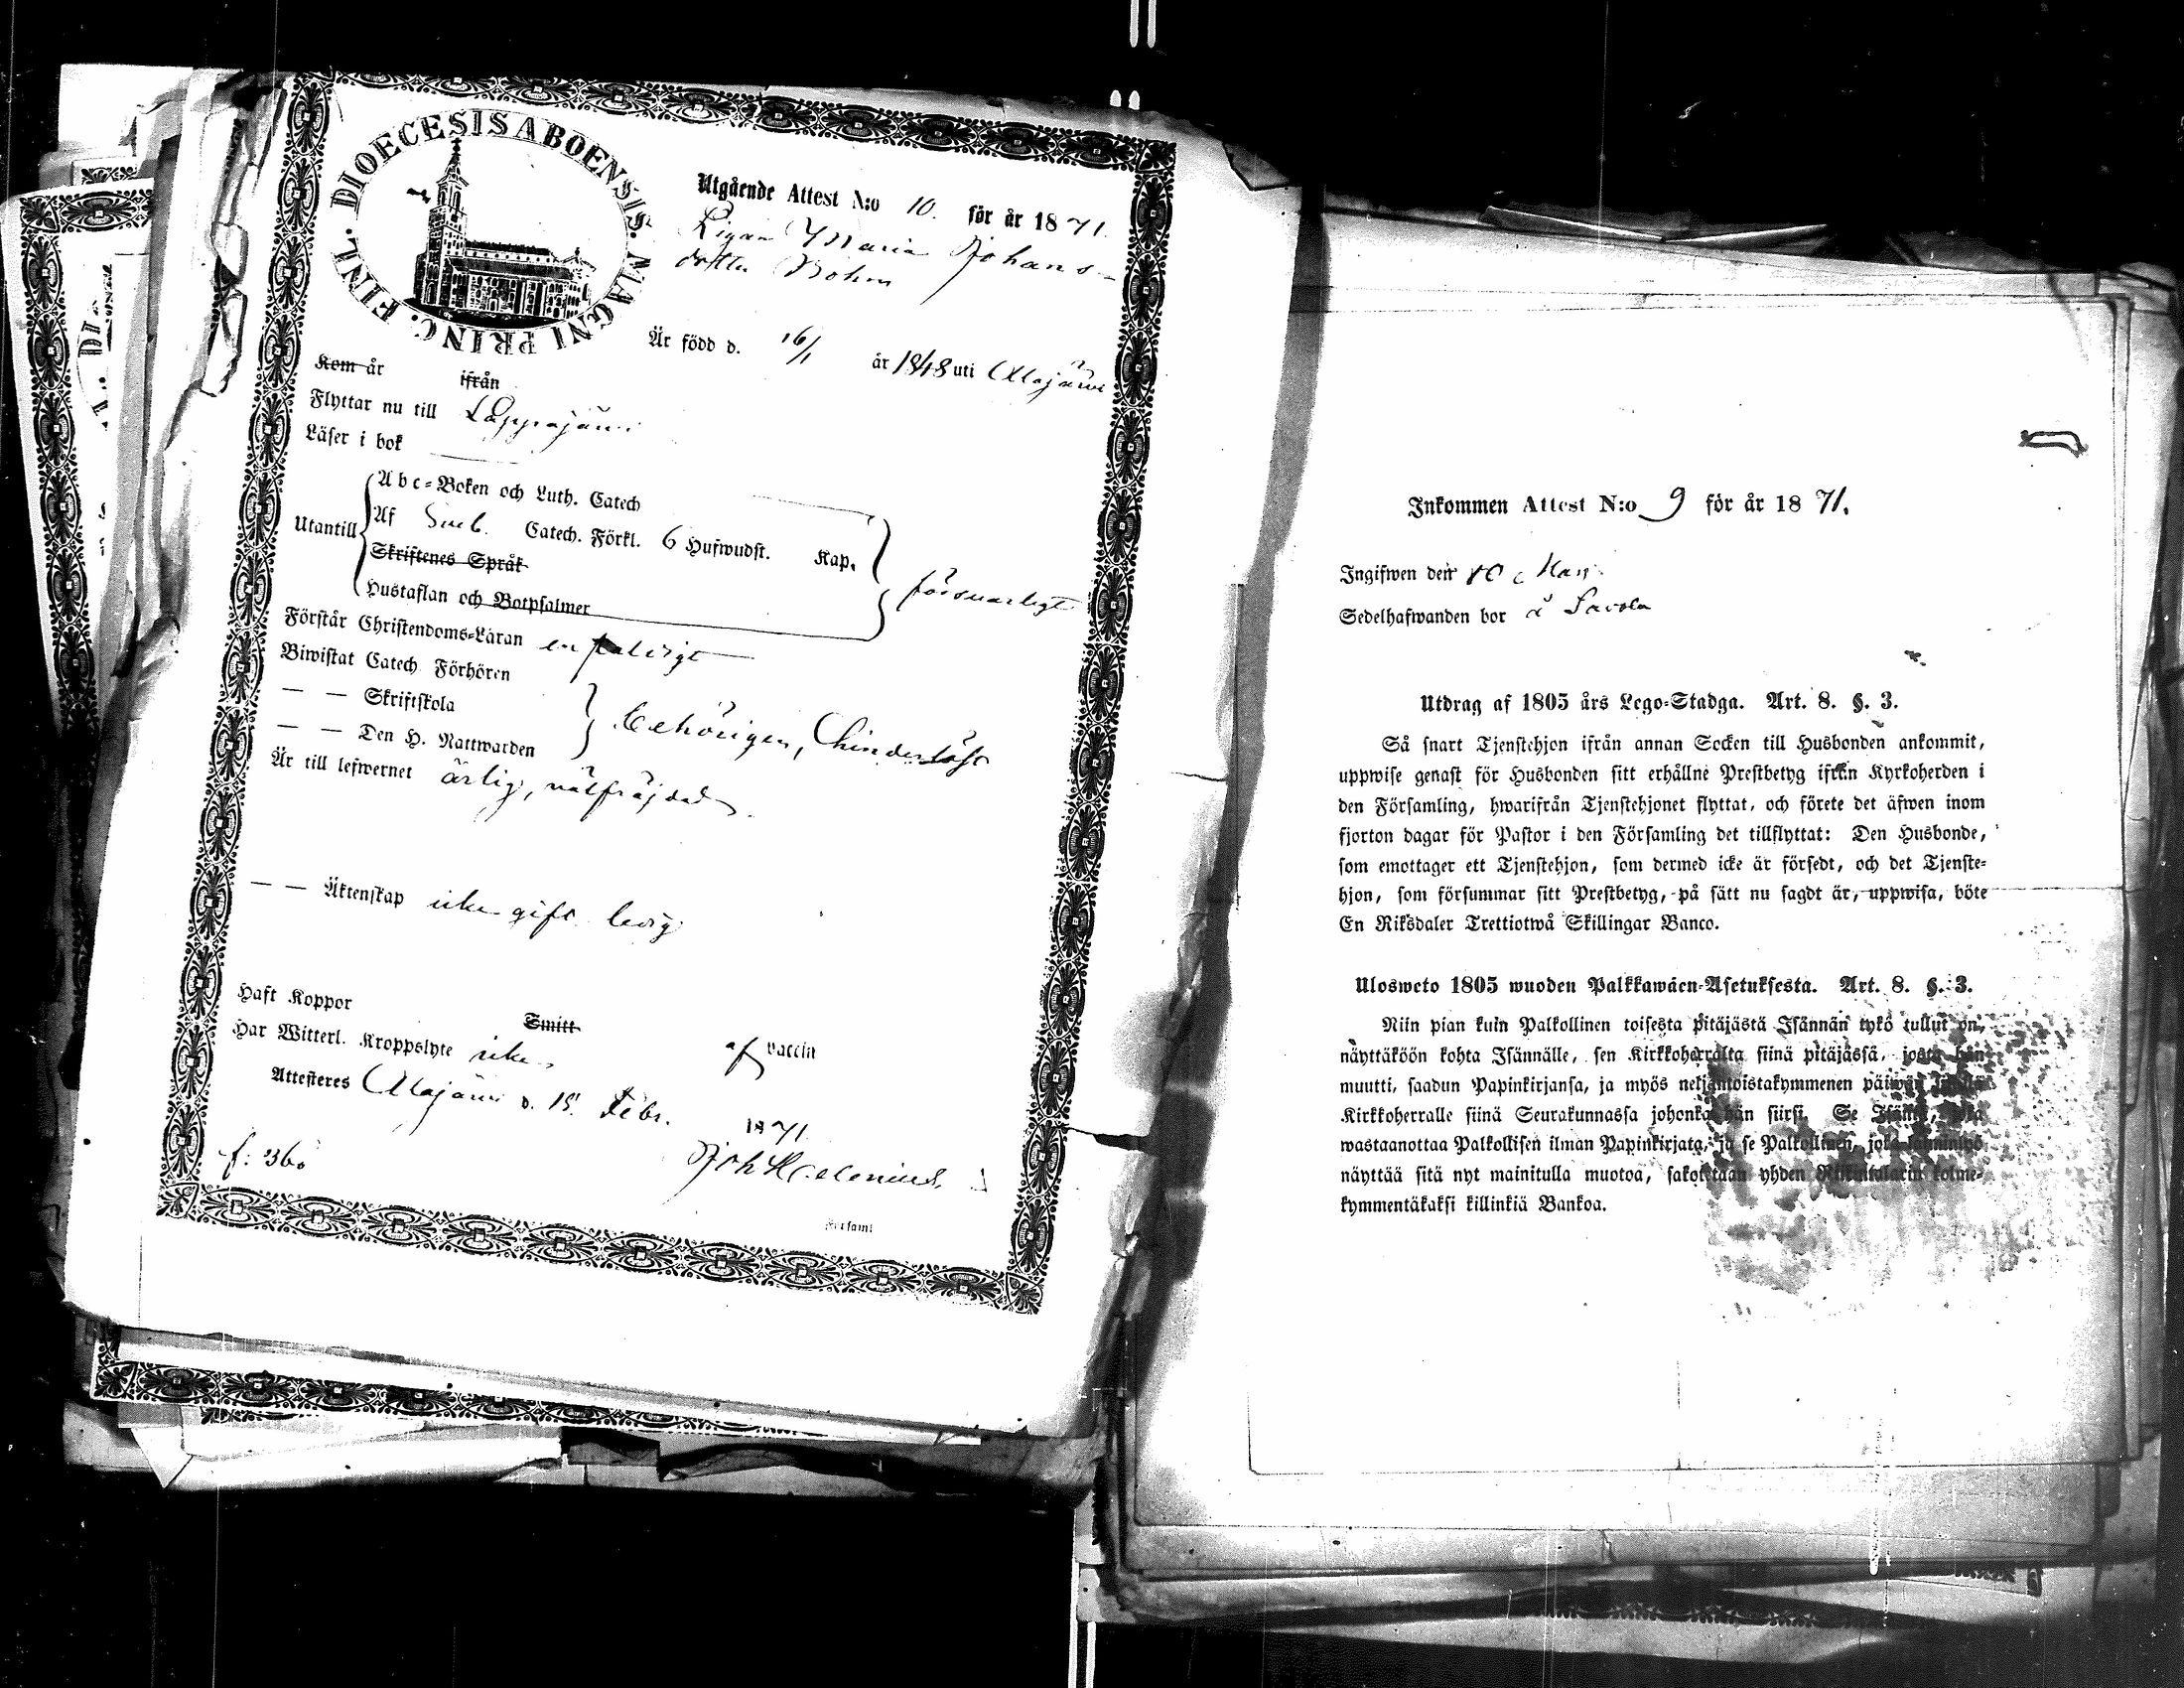 DIOECESIS ABOENSIS. MAGNI PRINC. FINL.
Utgående Attest N:o 10. för år 1871.
Pigan Maria Johans-
dotter Bohm
Är född d. 16/1 år 1848 uti Alajärvi
Kom år ifrån
Flyttar nu till Lappajärvi
Läser i bok
Utantill
Abc-Boken och Luth. Catech
Af Sveb. Catech. Förkl. 6 Hufwudst. Kap.
Skriftenes Språk
Hustaflan och Botpsalmer
försvarligt
Förstår Christendoms-Läran enfaldigt
Biwistat Catech Förhören
— — Skriftskola
— — Den H. Nattwarden
behörigen,
Är till lefwernet ärlig, välfräjdad
— — Äktenskap icke gift ledig
Haft Koppor Smitt af vaccin
Har Witterl. Kroppslyte icke
Attesteres Alajärvi d. 15 Febr. 1871
f: 360
Joh
Församl
Inkommen Attest N:o 9 för år 1871.
Ingifwen den 10 Mars
Sedelhafwanden bor å Savola
Utdrag af 1805 års Lego-Stadga. Art. 8. §. 3.
Så snart Tjenstehjon ifrån annan Socken till Husbonden ankommit,
uppwise genast för Husbonden sitt erhållne Prestbetyg ifrån Kyrkoherden i
den Församling, hwarifrån Tjenstehjonet flyttat, och förete det äfwen inom
fjorton dagar för Pastor i den Församling det tillflyttat: Den Husbonde,
som emottager ett Tjenstehjon, som dermed icke är försedt, och det Tjenste-
hjon, som försummar sitt Prestbetyg, på sätt nu sagdt är, uppwisa, böte
En Riksdaler Trettiotwå Skillingar Banco.
Ulosweto 1805 wuoden Palkkawäen-Asetuksesta. Art. 8. §. 3.
Niin pian kuin Palkollinen toisesta pitäjästä Isännän tykö tullut on,
näyttäköön kohta Isännälle, sen Kirkkoherralta siinä pitäjässä, josta hän
muutti, saadun Papinkirjansa, ja myös neljäntoistakymmenen päiwän
Kirkkoherralle siinä Seurakunnassa johonka hän siirsi. Se Isäntä, joka
wastaanottaa Palkollisen ilman Papinkirjata, ja se Palkollinen, joka
näyttää sitä nyt mainitulla muotoa, sakotetaan yhden Riikintalarin kolme-
kymmentäkaksi killinkiä Bankoa.